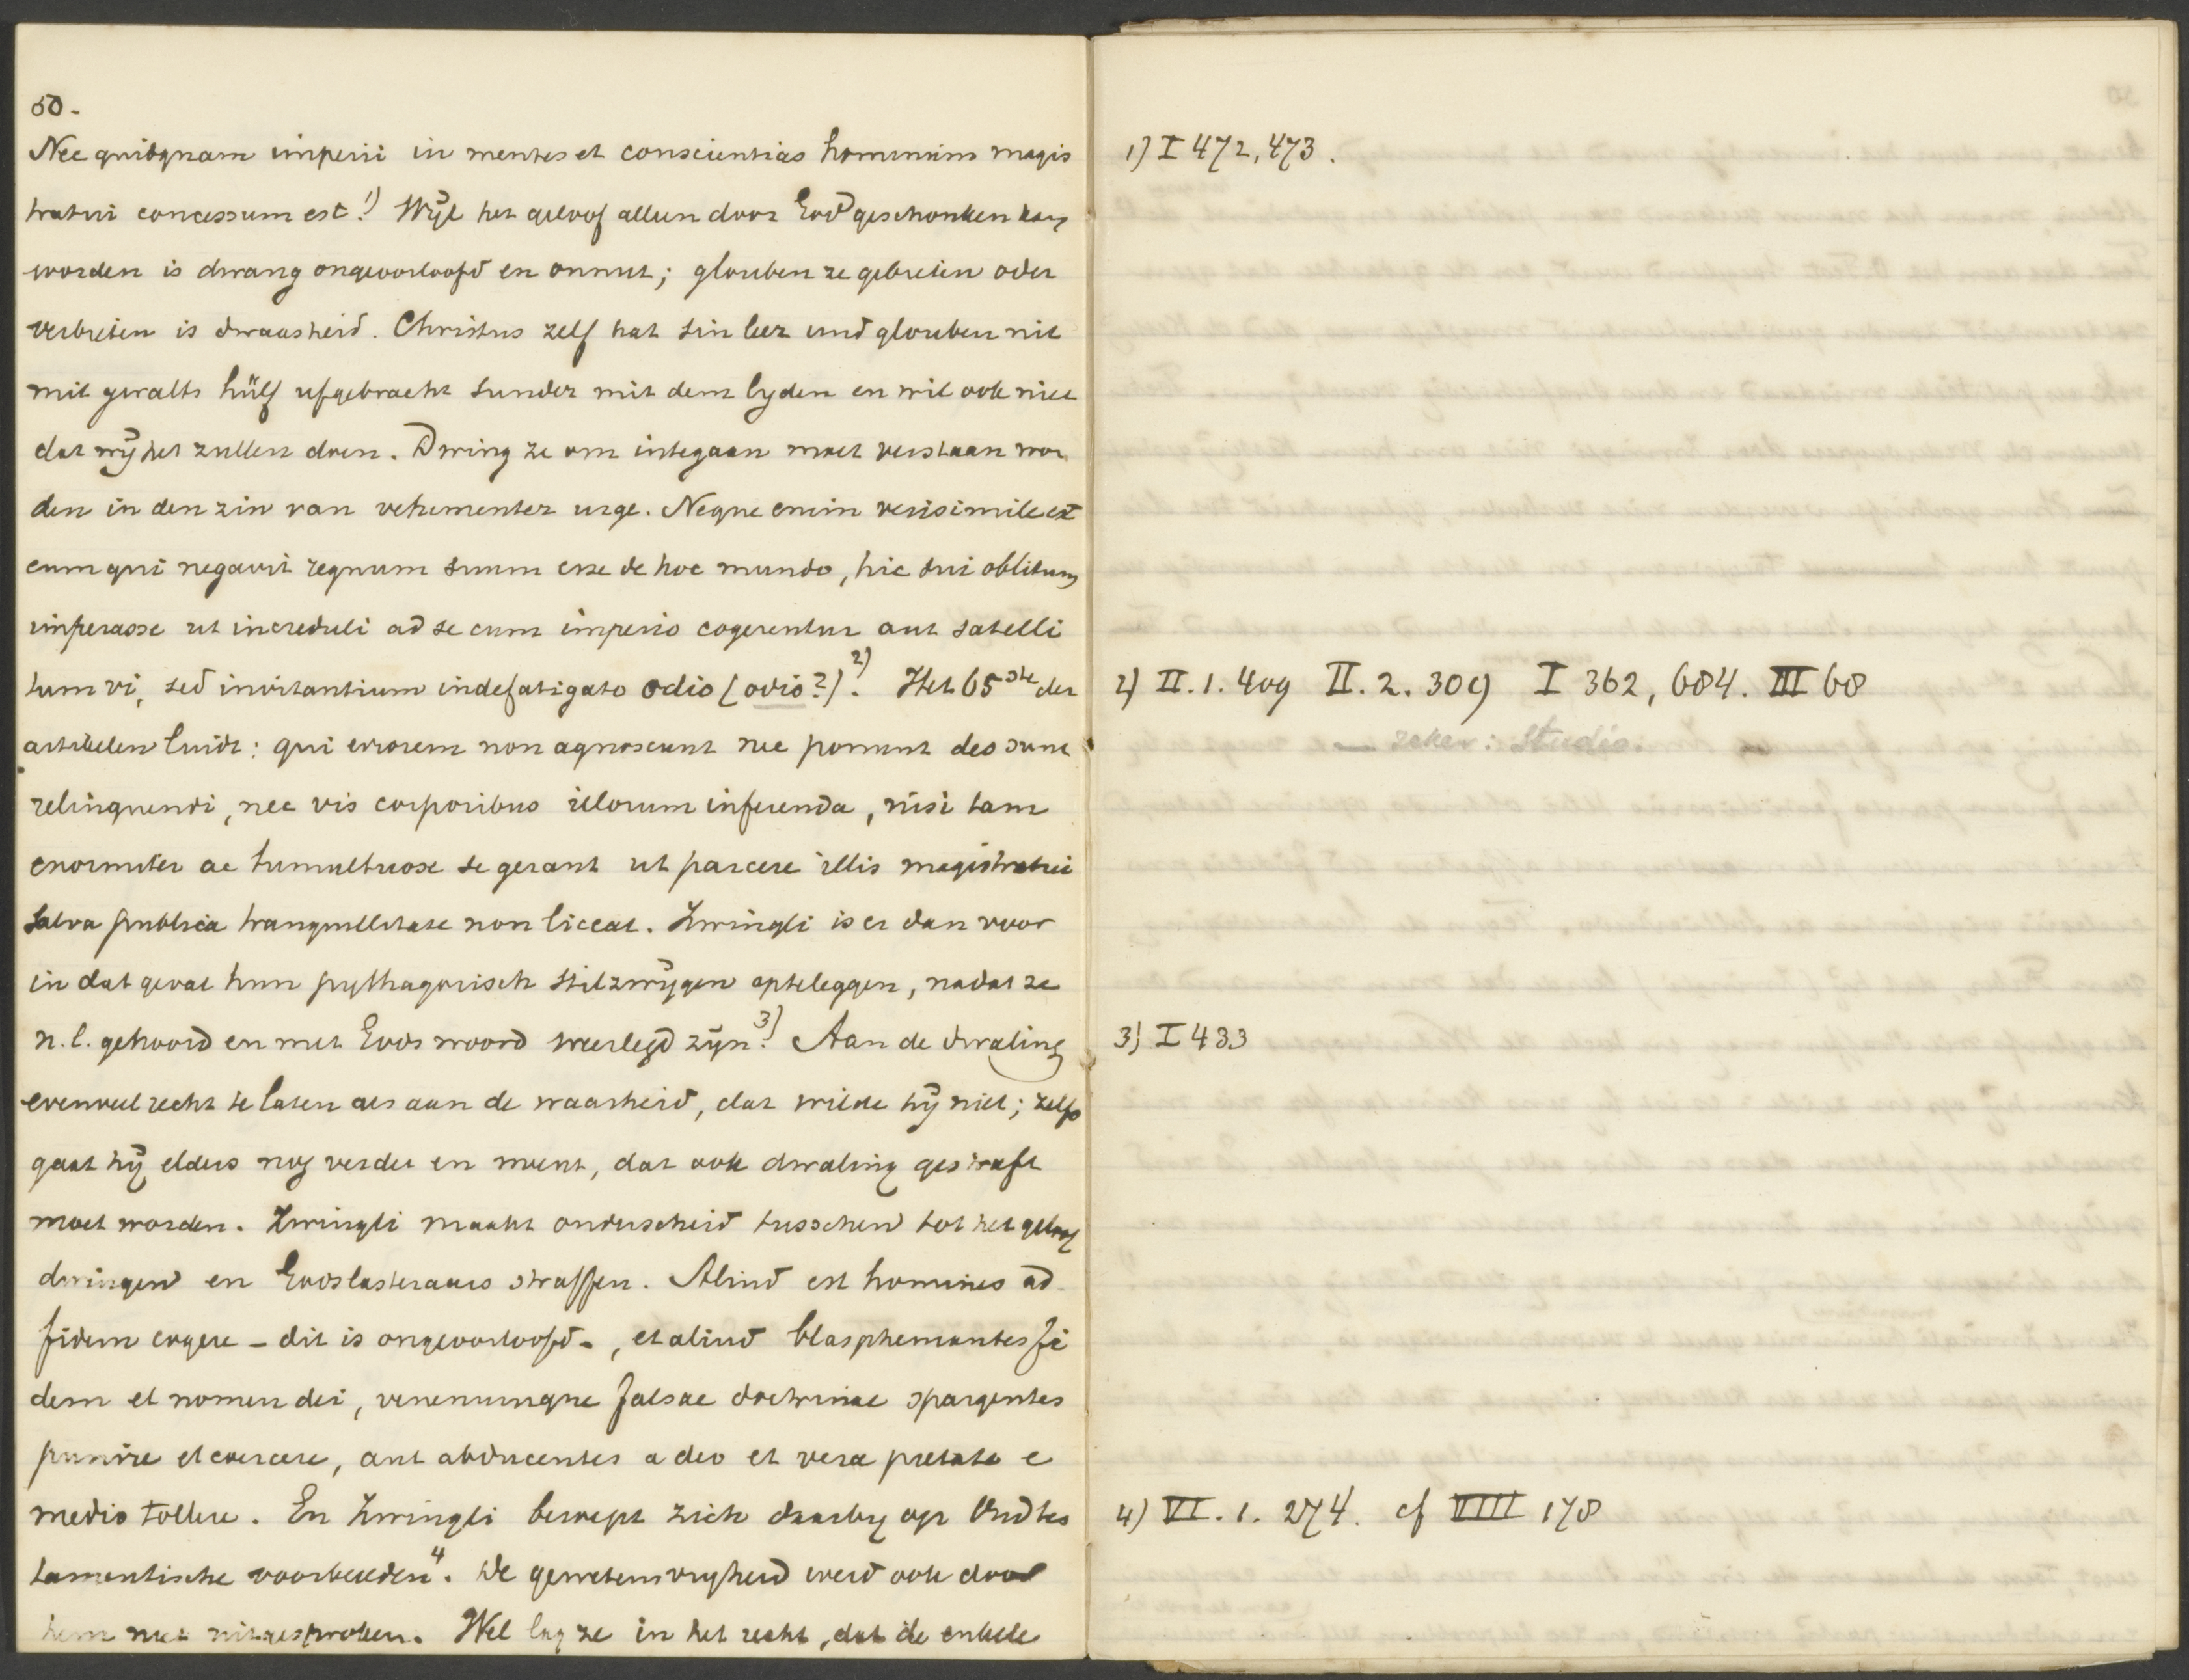 50.
Nec quidquam imperii in mentes et conscientias hominum magis
tratui concessum est.1) Wijl het geloof alleen door God geschonken kan
worden is dwang ongeoorloofd en onnut; glouben ze gebieten oder
verbieten is dwaasheid. Christus zelf hat sin leer und glouben nit
mit gwalts hülf ufgebracht sunder mit dem lyden en wil ook niet
dat wij het zullen doen. Dwing ze om integaan moet verstaan wor
den in den zin van vehementer urge. Neque enim verisimile est
eum qui negavit regnum suum esse de hoc mundo, hic sui oblitum
imperasse ut increduli ad se cum imperio cogerentur aut satelli
tum vi, sed invitantium indefatigato odio (ovio?)2). Het 65ste der
artikelen luidt: qui errorem non agnoscunt nec ponunt deo sunt
relinquendi, nec vis corporibus illorum inferenda, nisi tam
enormiter ac tumultuose se gerant ut parcere illis magistratui
salva publica tranquillitate non liceat. Zwingli is er dan voor
in dat geval hun pythagorisch stilzwijgen opteleggen, nadat ze
n.l. gehoord en met Gods woord weerlegd zijn.3) Aan de dwaling
evenveel recht te laten als aan de waarheid, dat wilde hij niet; zelfs
gaat hij elders nog verder en meent, dat ook dwaling gestraft
moet worden. Zwingli maakt onderscheid tusschen tot het geloof
dwingen en Godslasteraars straffen. Aliud est homines ad
fidem cogere – dit is ongeoorloofd –, et aliud blasphemantes fi
dem et nomen dei, venenumque falsae doctrinae spargentes
punire et coercere, aut abducentes a deo et vera pietate e
medio tollere. En Zwingli beroept zich daarby op Oudtes
tamentische voorbeelden4. De gewetensvryheid werd ook door
hem niet uitgesproken. Wel lag ze in het recht, dat de enkele
1) I 472, 473.
2) II. 1. 409 II. 2. 309 I 362, 684. III 68
zeker: studio.
3) I 433
4) VI. 1. 274. cf VIII 178